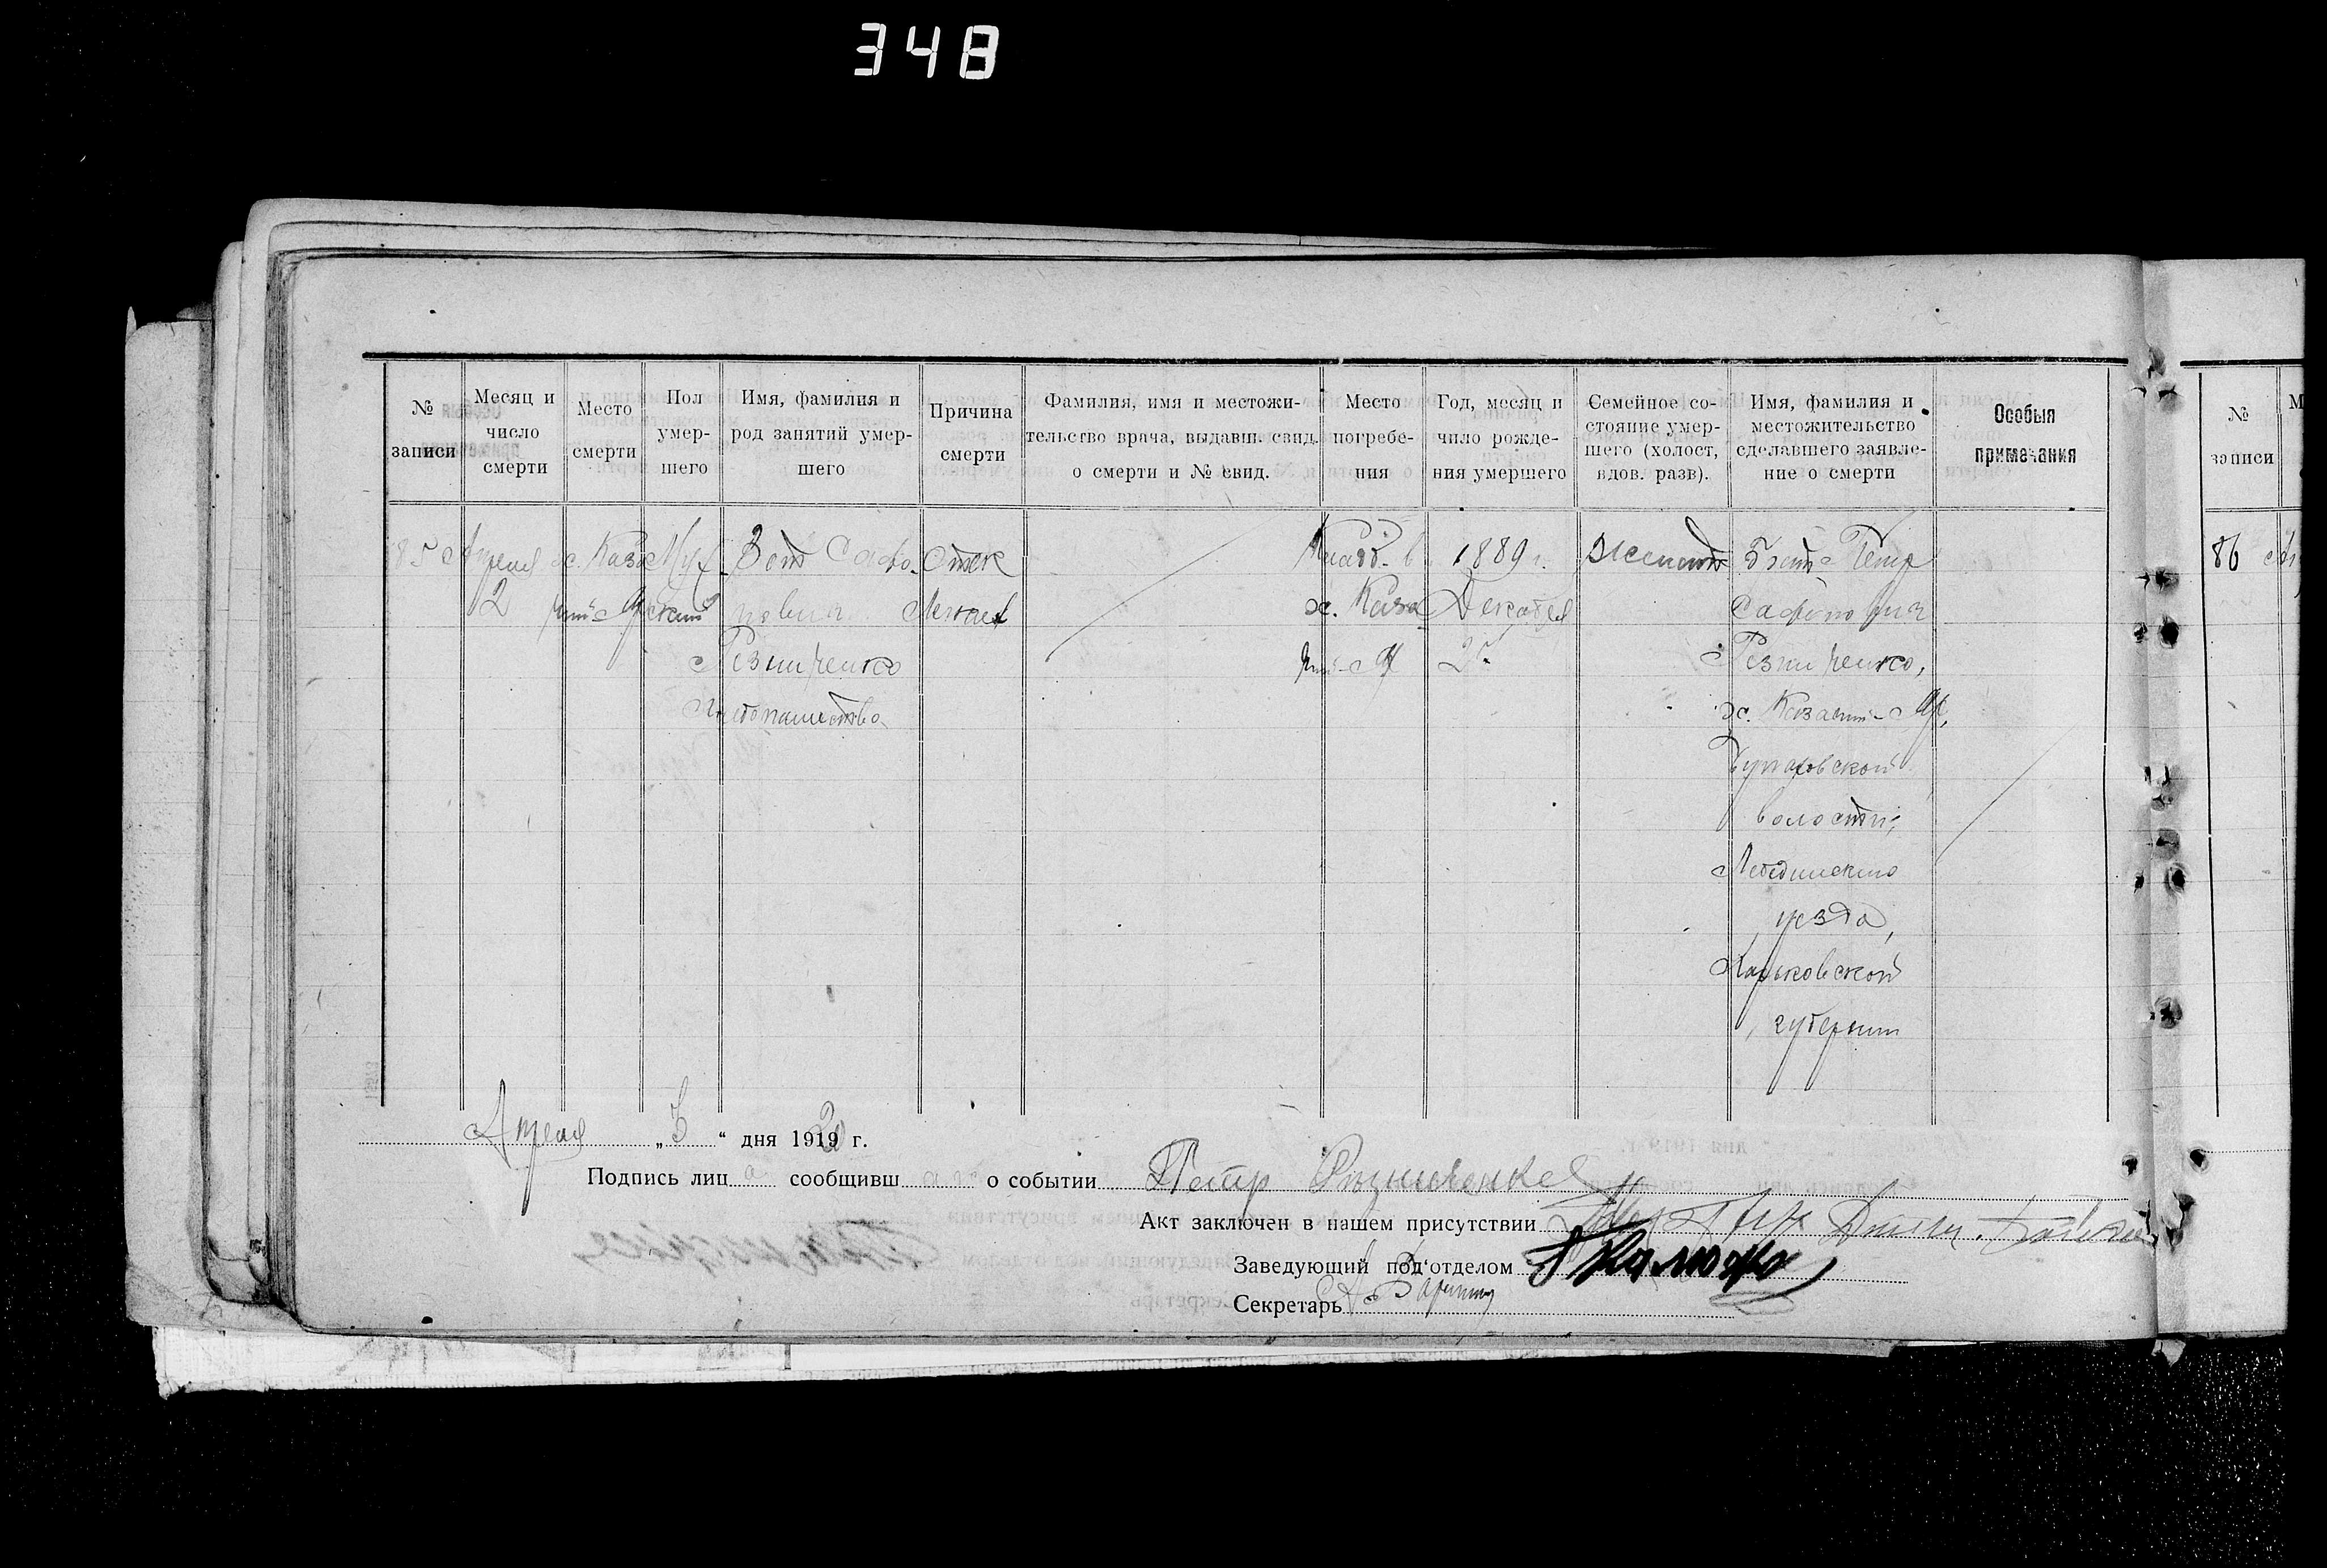 348
№ записи
Месяц и число смерти
Место смерти
Пол умер-шего
Имя, фамилия и род занятий умер-шего
Причина смерти
Фамилия, имя и местожи-тельство врача, выдавш. свид. о смерти и № свид.
Место погребе-ния
Год, месяц и число рожде-ния умершего
Семейное со-стояние умер-шего (холост, вдов. разв).
Имя, фамилия и местожительство сделавшего заявле-ние о смерти
Особыя примечания
№ записи
85 Апреля х. Каза Муж Зот Сафо- Отек Кладб. в 1889 г. женат Брат Петр
2 чий-Яр ской нович Легких х. Каза Декабря Сафонович
Резниченко чий-Яр 25 Резниченко,
Хлебопашество х. Казачий-Яр,
волости,
Лебединскаго
уезда,
Харьковской
губернии
86
Апреля „3“ дня 1920 г.
Подпись лица сообщивш о событии Петр Рызниченко
Акт заключен в нашем присутствии
Заведующий под‘отделом
Секретарь